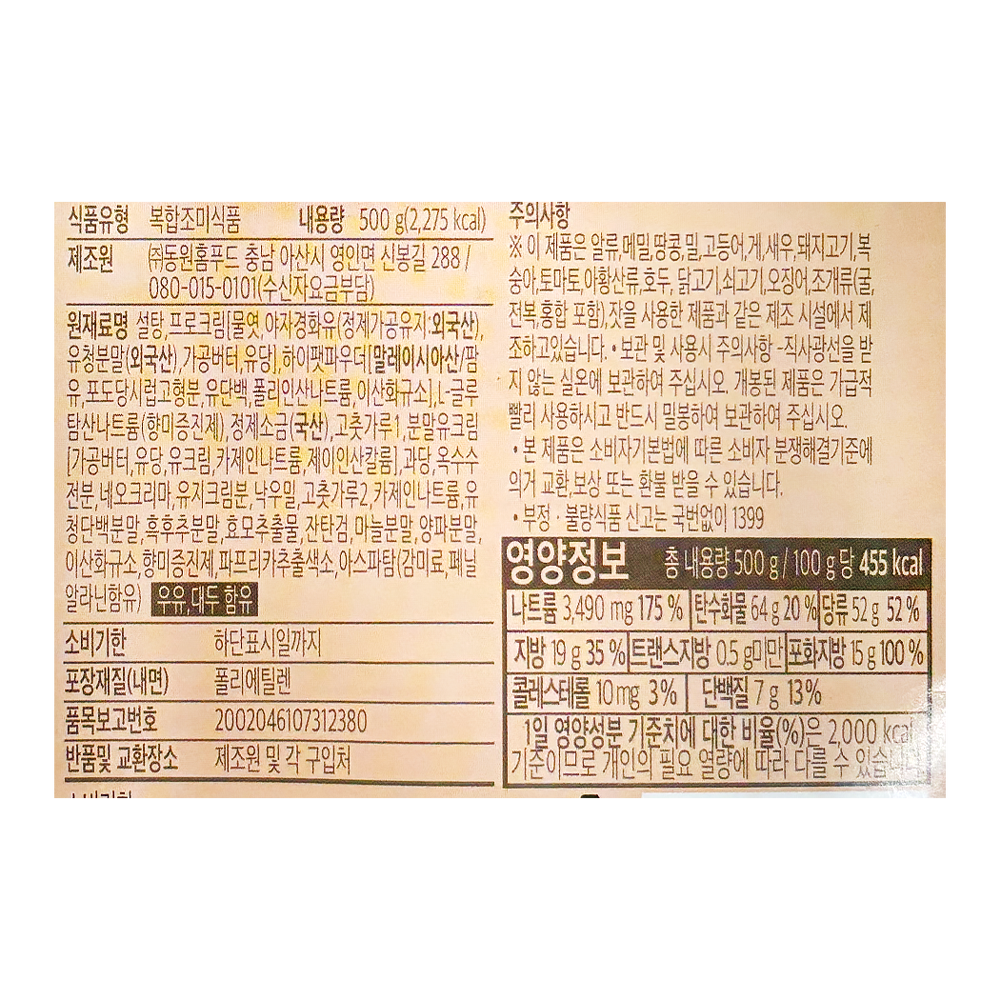 식품유형 복합조미식품 내용량 500 g(2,275 kcal)
제조원 ㈜동원홈푸드 충남 아산시 영인면 신봉길 288 /
080-015-0101(수신자요금부담)
원재료명 설탕,프로크림[물엿,야자경화유(정제가공유지:외국산),
유청분말(외국산),가공버터,유당],하이팻파우더[말레이시아산/팜
유,포도당시럽고형분,유단백,폴리인산나트륨,이산화규소],L-글루
탐산나트륨(향미증진제),정제소금(국산),고춧가루1,분말유크림
[가공버터,유당,유크림,카제인나트륨,제이인산칼륨],과당,옥수수
전분,네오크리마,유지크림분,낙우밀,고춧가루2,카제인나트륨,유
청단백분말,흑후추분말,효모추출물,잔탄검,마늘분말,양파분말,
이산화규소,향미증진제,파프리카추출색소,아스파탐(감미료,페닐
알라닌함유) 우유,대두 함유
소비기한 하단표시일까지
포장재질(내면) 폴리에틸렌
품목보고번호 2002046107312380
반품및 교환장소 제조원 및 각 구입처
주의사항
※ 이 제품은 알류,메밀,땅콩,밀,고등어,게,새우,돼지고기,복
숭아,토마토,아황산류,호두, 닭고기,쇠고기,오징어,조개류(굴,
전복,홍합 포함),잣을 사용한 제품과 같은 제조 시설에서 제
조하고있습니다. • 보관 및 사용시 주의사항 -직사광선을 받
지 않는 실온에 보관하여 주십시오. 개봉된 제품은 가급적
빨리 사용하시고 반드시 밀봉하여 보관하여 주십시오.
• 본 제품은 소비자기본법에 따른 소비자 분쟁해결기준에
의거 교환,보상 또는 환불 받을 수 있습니다.
• 부정 · 불량식품 신고는 국번없이 1399
영양정보 총 내용량 500 g / 100 g 당 455 kcal
나트륨 3,490 mg 175 % 탄수화물 64 g 20 % 당류 52 g 52 %
지방 19 g 35 % 트랜스지방 0.5 g미만 포화지방 15 g 100 %
콜레스테롤 10 mg 3 % 단백질 7 g 13 %
1일 영양성분 기준치에 대한 비율(%)은 2,000 kcal
기준이므로 개인의 필요 열량에 따라 다를 수 있습니다.